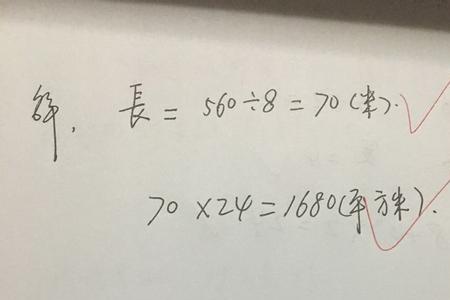 解, 長 = 560÷8 = 70 (米).
70 ×24 = 1680(平方米).